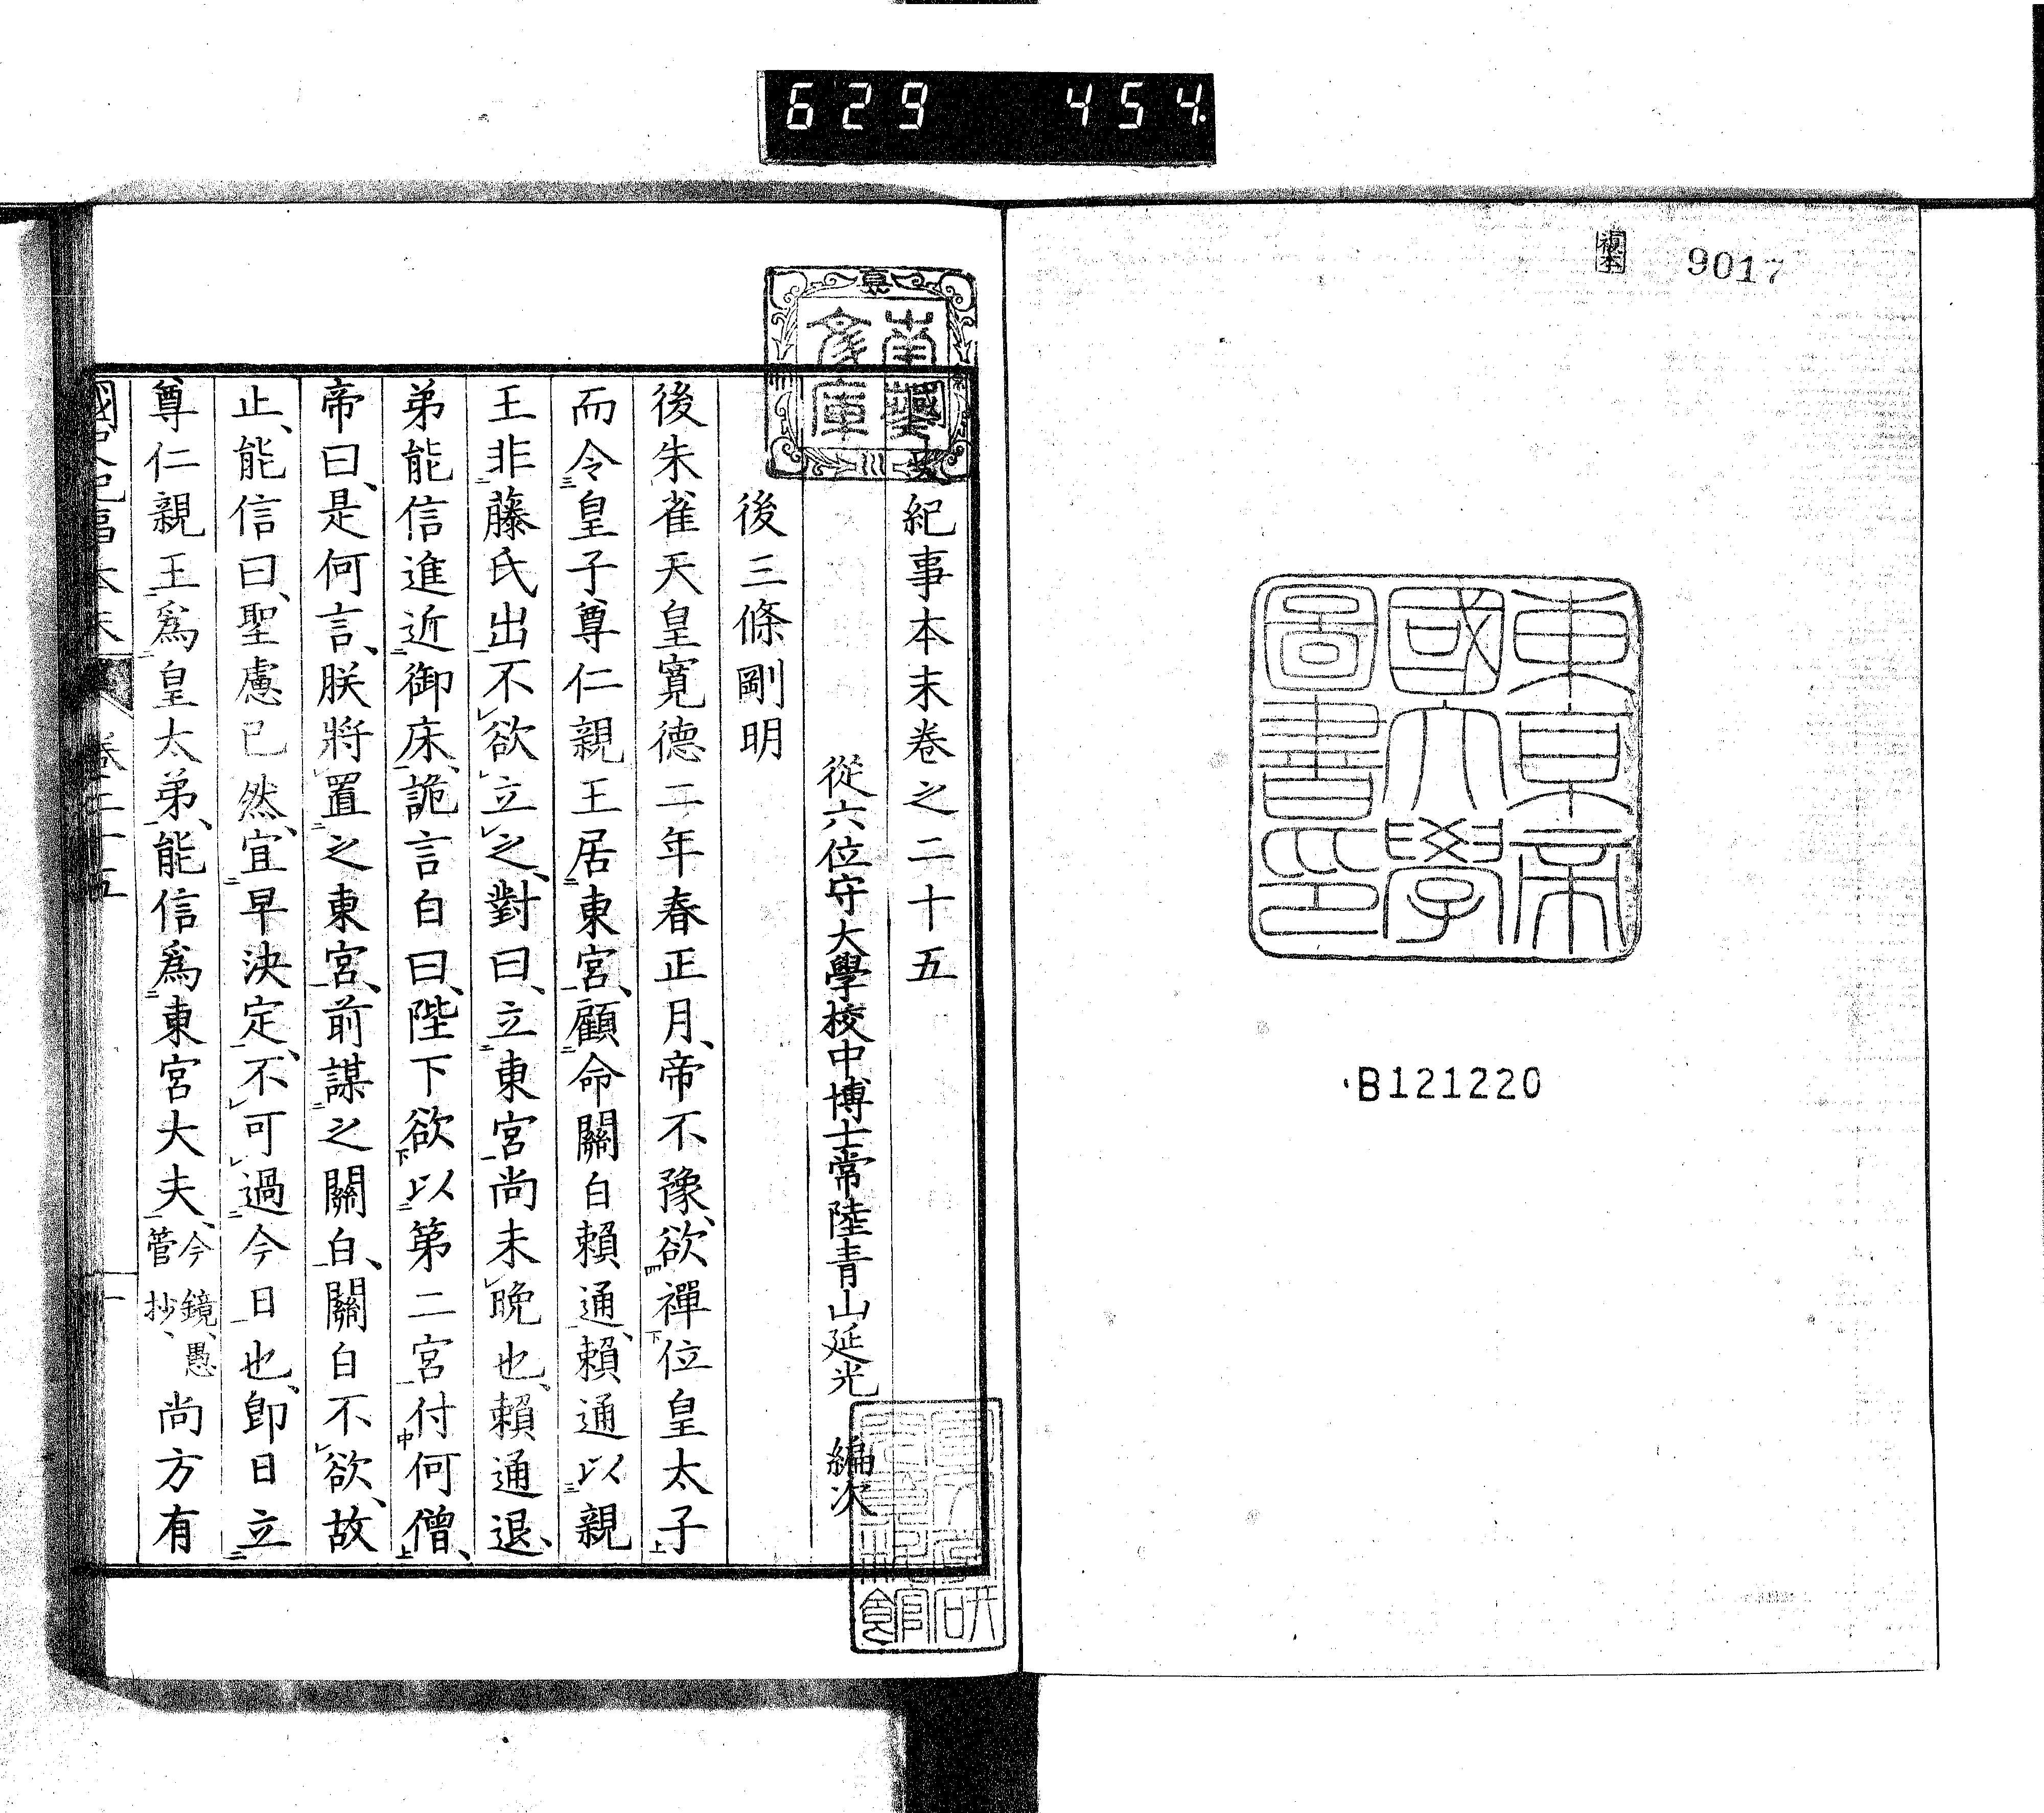 629 454
複本
9017
東京帝
國大學
圖書印
B121220
國史紀事本末卷之二十五
從六位守大學校中博士常陸青山延光 編次
後三條剛明
後朱雀天皇寬德二年春正月、帝不豫、欲禪位皇太子
而令皇子尊仁親王居東宮、顧命關白賴通、賴通以親
王非藤氏出不欲立之、對曰、立東宮尚未晚也、賴通退、
弟能信進近御床、詭言白曰、陛下欲以第二宮付何僧、
帝曰、是何言、朕將置之東宮、前謀之關白、關白不欲、故
止、能信曰、聖慮已然、宜早決定、不可過今日也、卽日立
尊仁親王爲皇太弟、能信爲東宮大夫、今鏡、愚管抄、尚方有
國史紀事本末 卷二十五 一